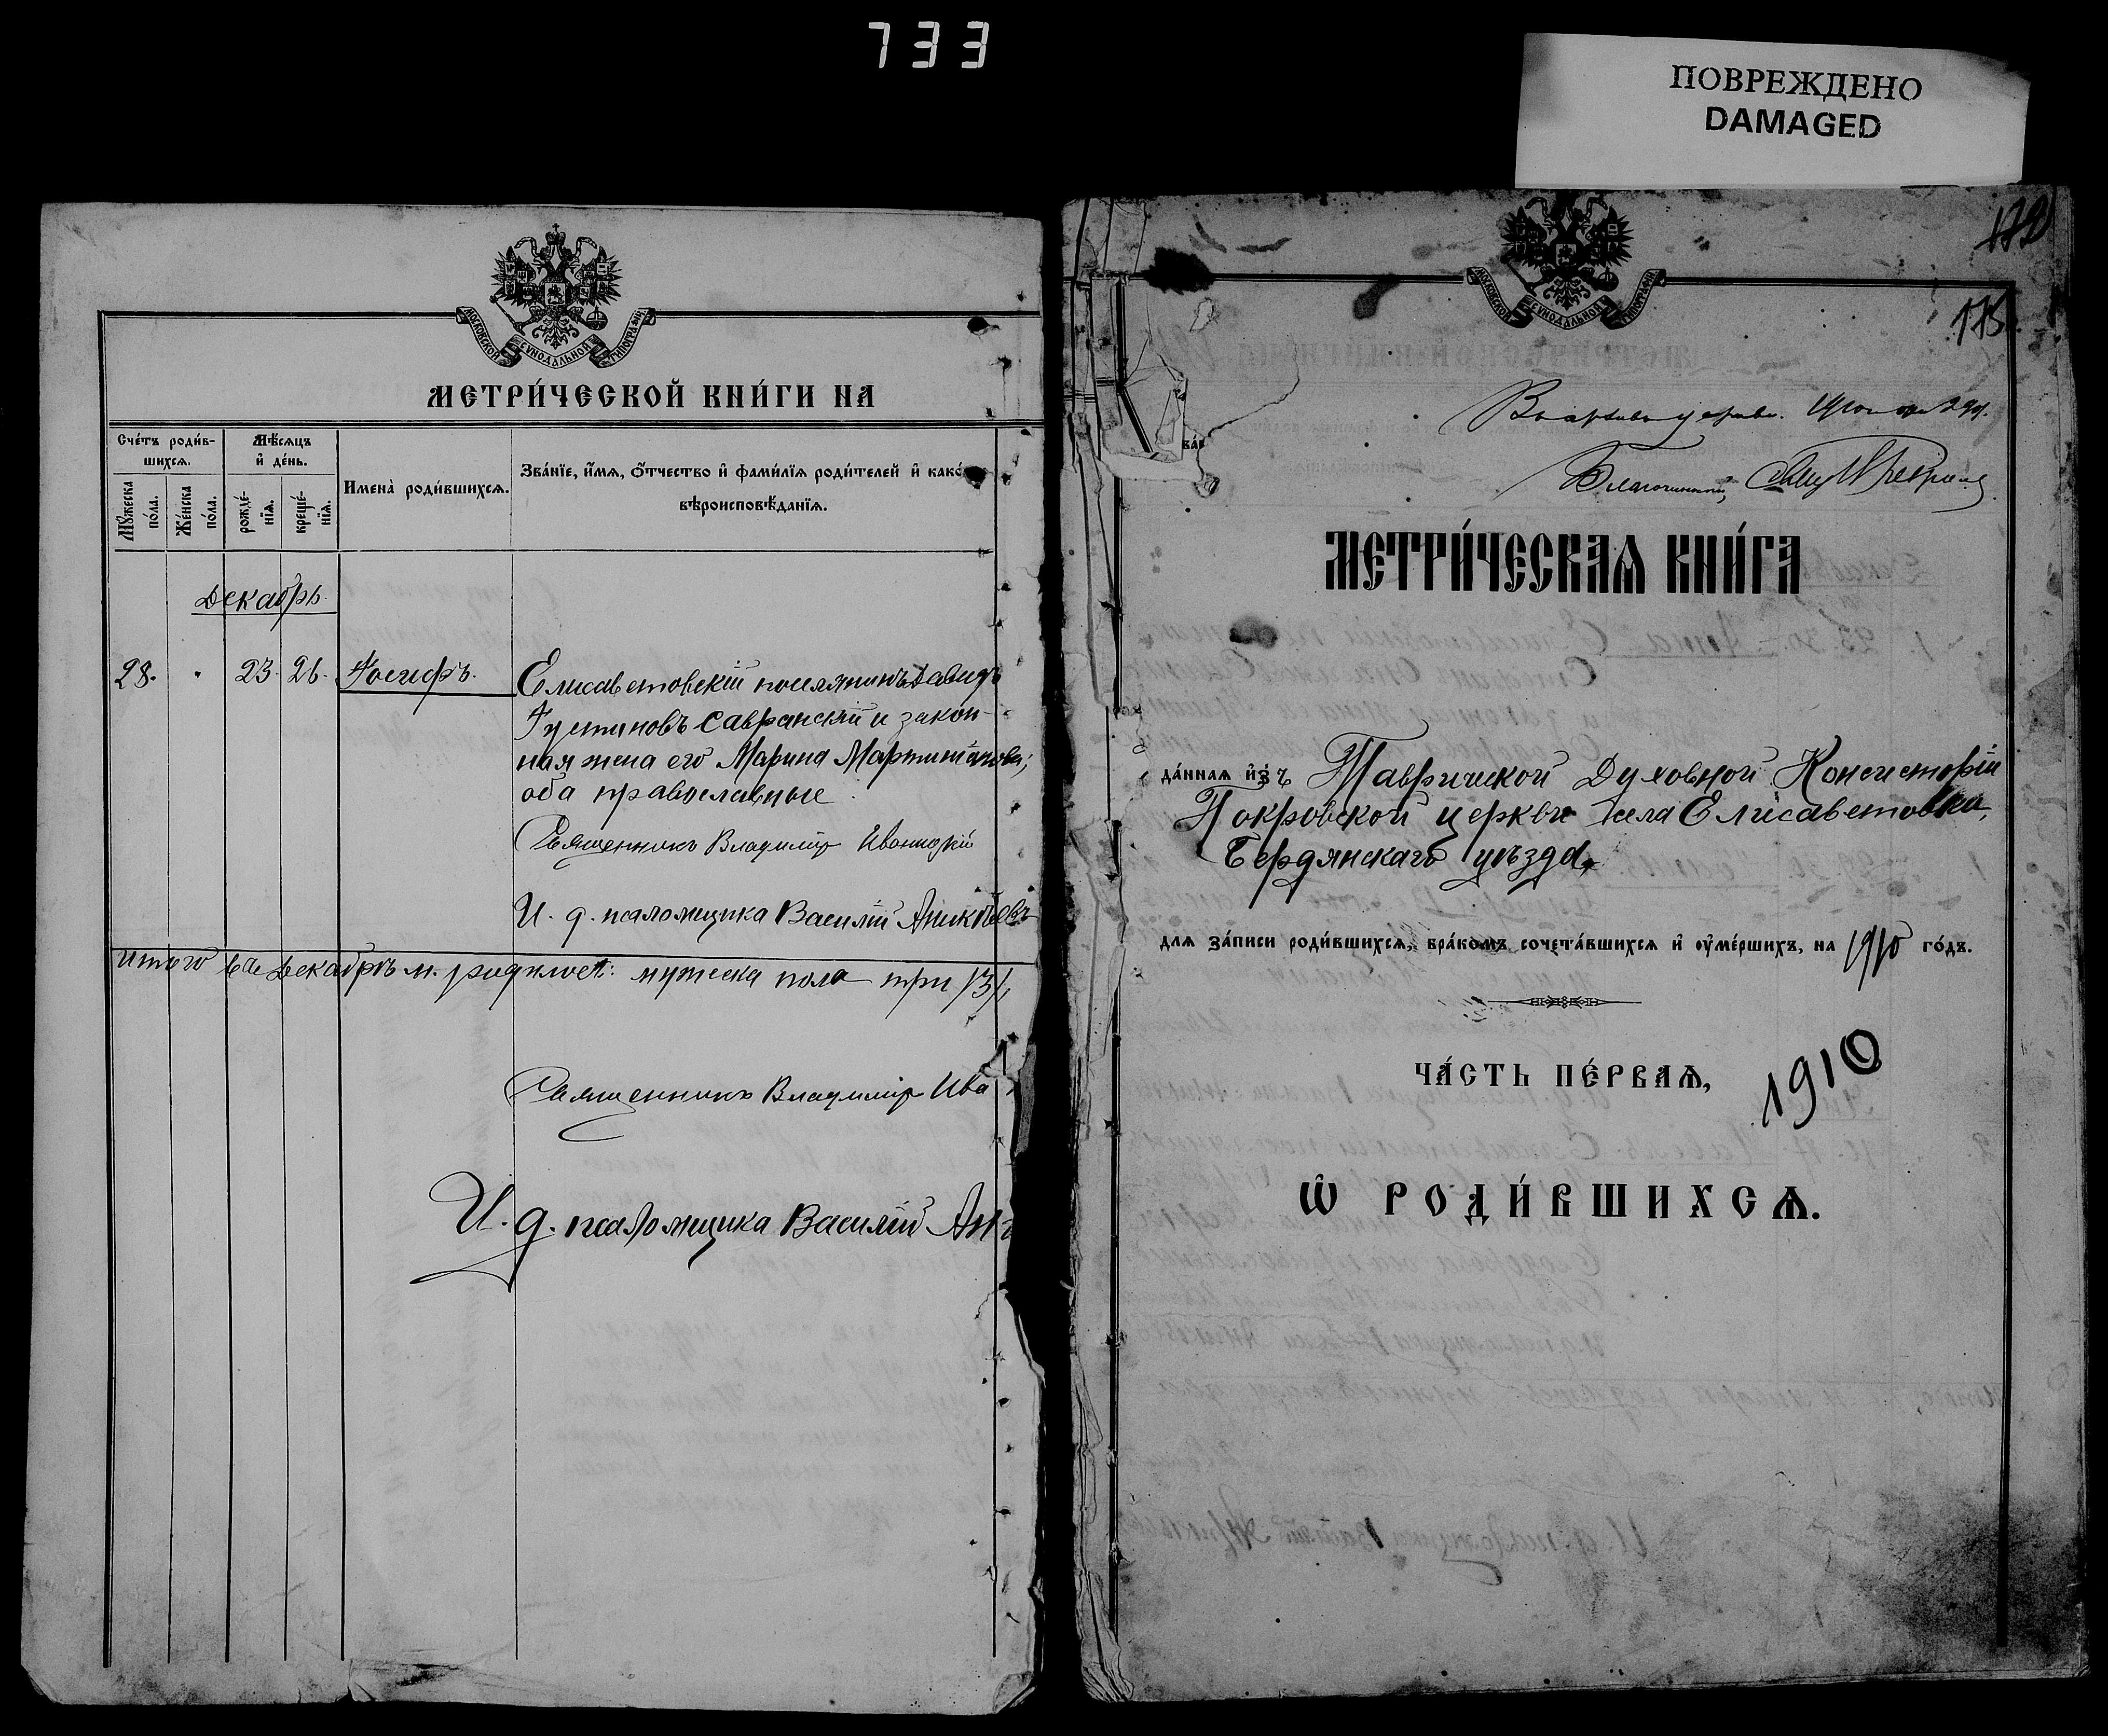 733
ПОВРЕЖДЕНО
DAMAGED
МОСКОВСКОЙ СУНОДАЛЬНОЙ ТИПОГРАФІИ
МЕТРИ́ЧЕСКОЙ КНИ́ГИ НА
Сче́тъ роди́в-
шихсѧ.
Мѣ́сѧцъ
и҆ де́нь.
Мꙋ́жеска
по́ла.
Же́нска
по́ла.
рожде́-
нїѧ.
креще́-
нїѧ.
Имена̀ роди́вшихсѧ.
Зва́нїе, и҆́мѧ, ѻ҆́тчество и҆ фами́лїѧ роди́телей и҆ како́
вѣроисповѣ́данїѧ.
Декабрь.
28. " 23. 26. Іосифъ.
Елисаветовскій поселянинъ Давидъ
Іустиновъ Савранскій и закон-
ная жена его Марина
оба православные.
Священникъ Владиміръ Иваницкій
И. д. псаломщика Василій Аникѣевъ
Итого въ Декабрѣ м. родилось: мужеска пола три /3/,
Священникъ Владиміръ Ива
И. д. псаломщика Василій Ан
МОСКОВСКОЙ СУНОДАЛЬНОЙ ТИПОГРАФІИ
175
Въ архивъ церкви.
Благочинный,
МЕТРИ́ЧЕСКАѦ КНИ́ГА
да́ннаѧ и҆зъ Таврической Духовной Консисторіи
Покровской церкви села Елисаветовки,
Бердянскаго уѣзда,
для за́писи роди́вшихсѧ, бра́комъ сочета́вшихсѧ и҆ ᲂу҆ме́ршихъ, на 1910 го́дъ.
ЧА́СТЬ ПЕ́РВАѦ,
1910
Ѽ РОДИ́ВШИХСѦ.